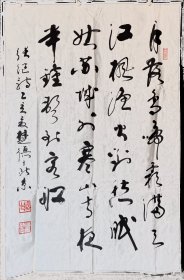 月落烏啼霜滿天
江楓漁火對愁眠
姑蘇城外寒山寺夜
半鐘聲到客船
張继詩